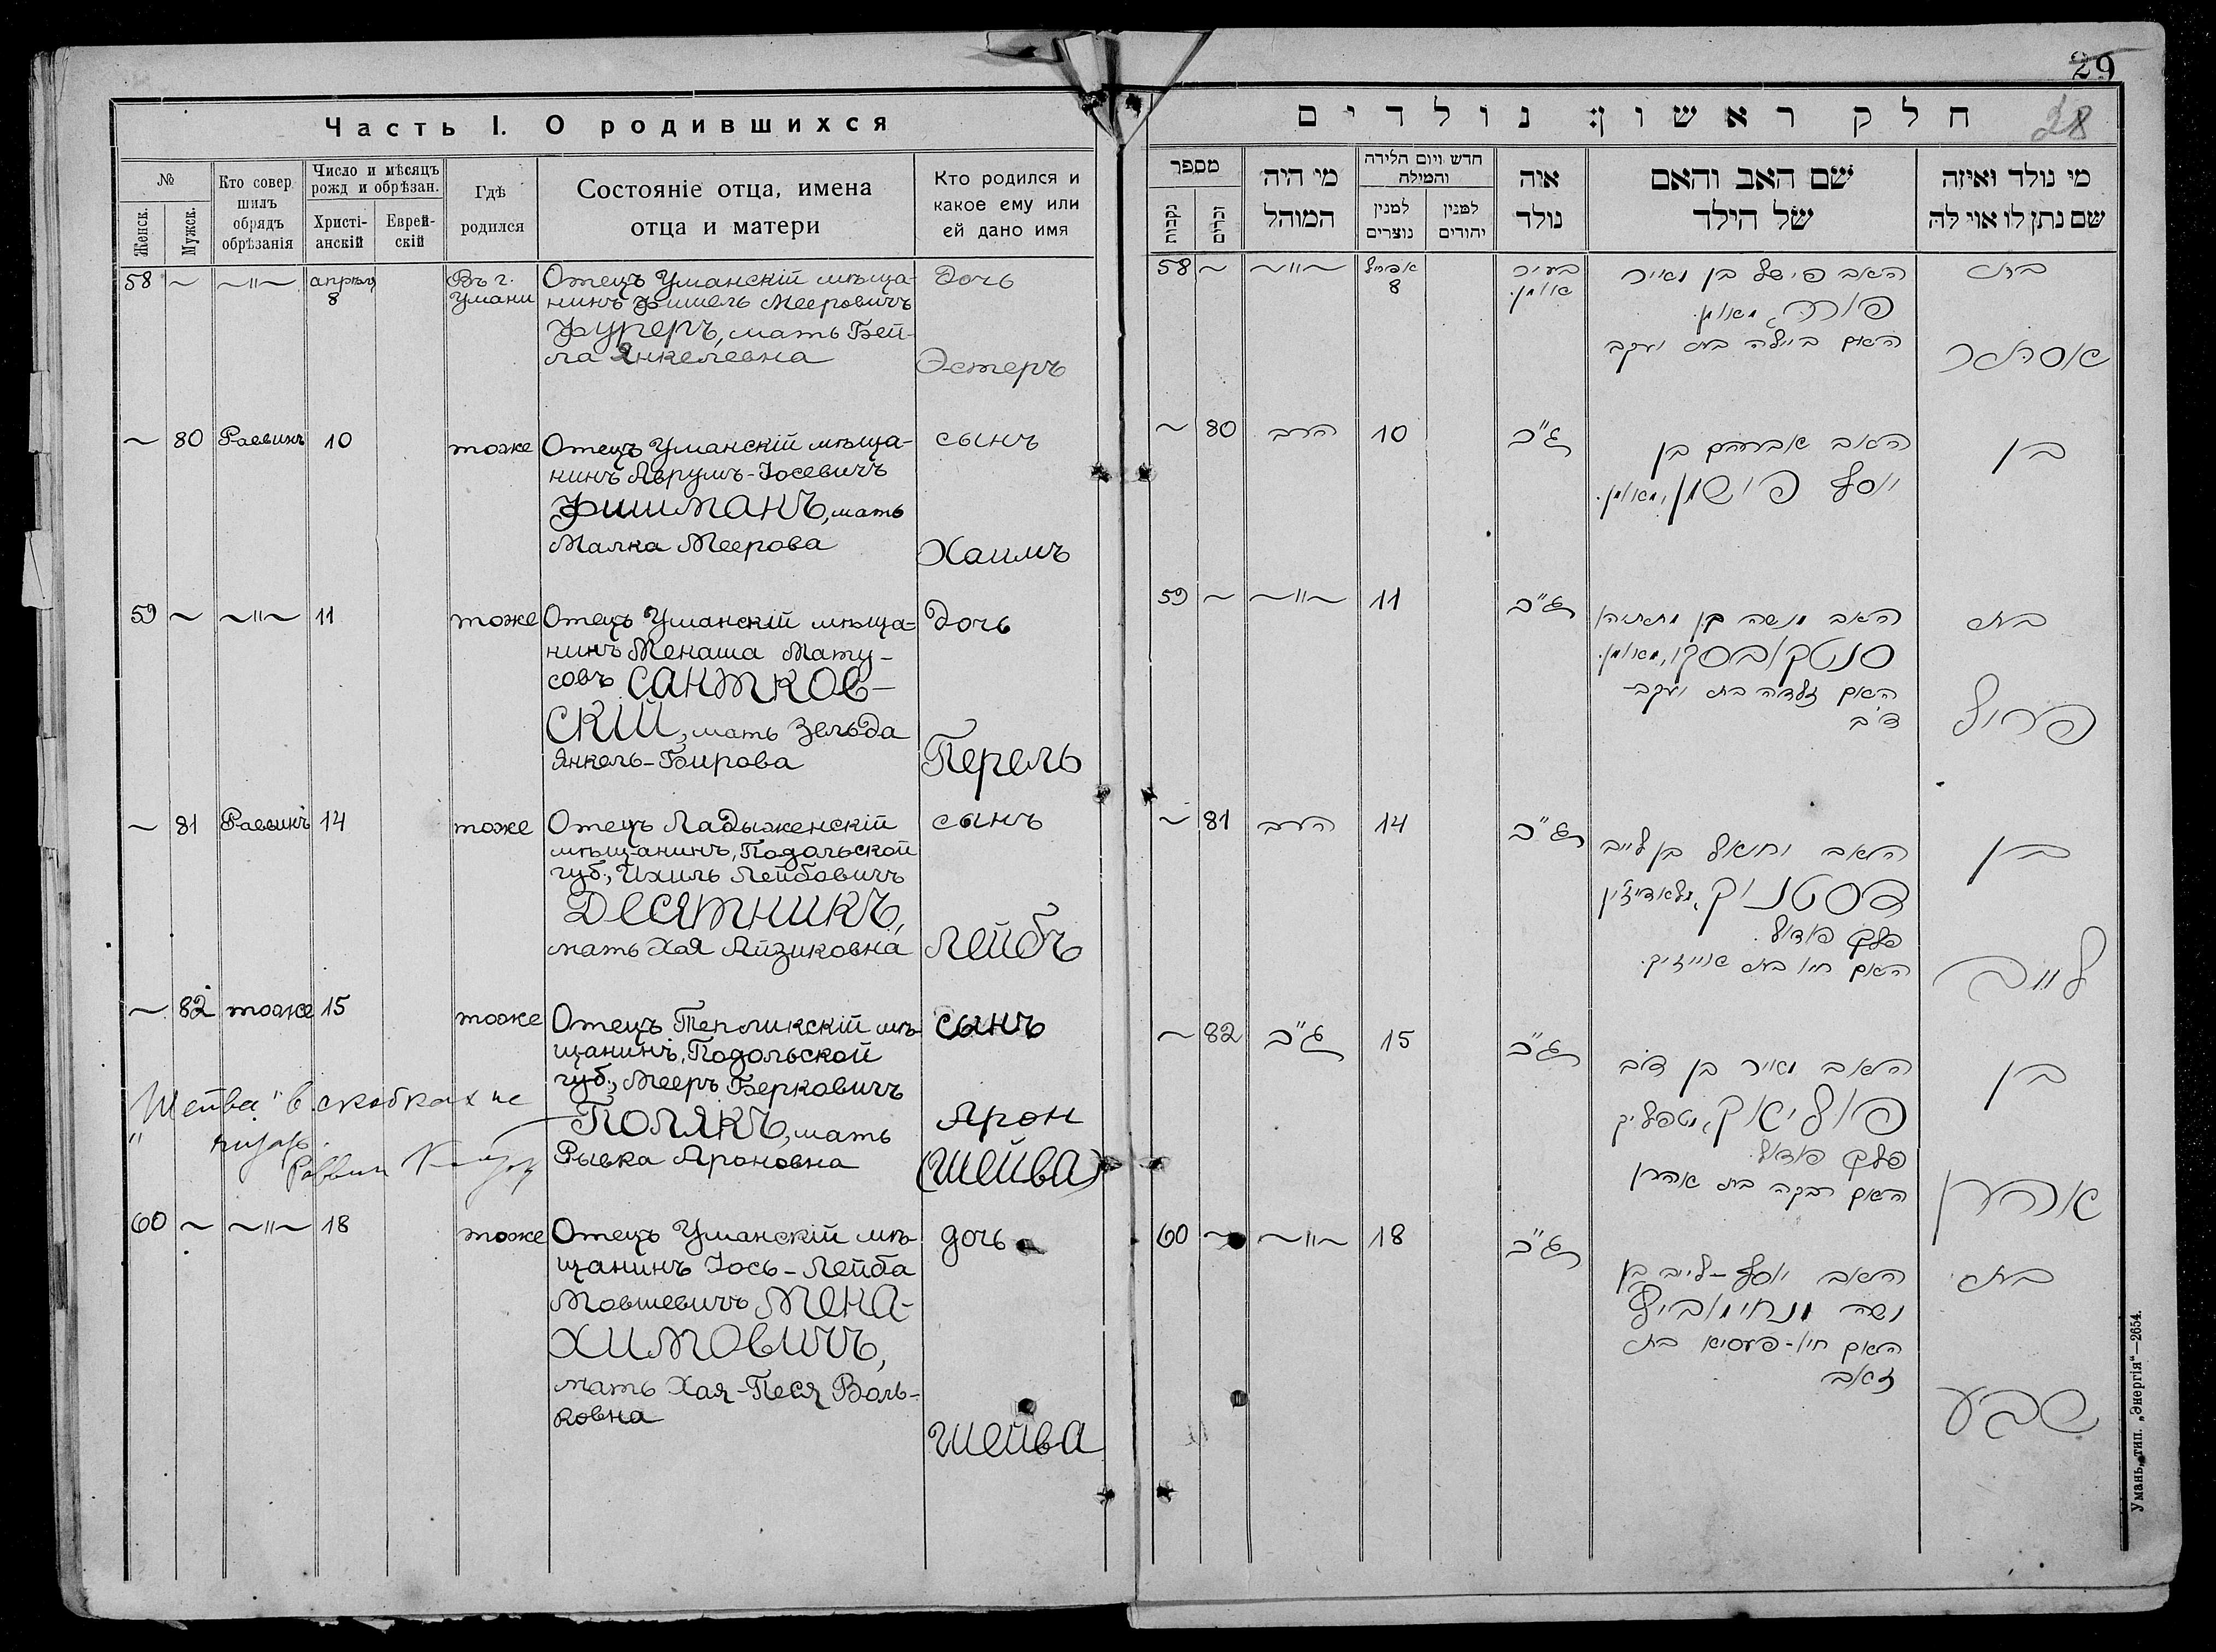 Часть I. О родившихся
№
Женск.
Мужск.
Кто совер
шилъ
обрядъ
обрѣзанія
Число и мѣсяцъ
рожд и обрѣзан.
Христі-
анскій
Еврей-
скій
Гдѣ
родился
Состояніе отца, имена
отца и матери
Кто родился и
какое ему или
ей дано имя
58 ~ ~"~ апрѣля
8
Въ г.
Умани
Отецъ Уманскій мѣща-
нинъ Фишель Мееровичъ
Фуреръ, мать Бей-
ла Янкелевна
Дочь
Эстеръ
~ 80 Раввинъ 10 тоже
Отецъ Уманскій мѣща-
нинъ Аврумъ-Іосевичъ
Фишманъ, мать
Малка Меерова
сынъ
Хаимъ
59 ~ ~"~ 11 тоже
Отецъ Уманскій мѣща-
нинъ Менаша Мату-
совъ Сантков-
скій, мать Зельда
Янкель-Бирова
Дочь
Перель
~ 81 Раввинъ 14 тоже
Отецъ Ладыженскій
мѣщанинъ, Подольской
губ., Ихиль Лейбовичъ
Десятникъ,
мать Хая Айзиковна
сынъ
Лейбъ
~ 82 тоже 15 тоже
Отецъ Терликскій мѣ-
щанинъ, Подольской
губ., Мееръ Берковичъ
Полякъ, мать
Рывка Ароновна
сынъ
Арон
(Шейва)
"Шейва" в скобках не
Раввин
60 ~ ~"~ 18 тоже
Отецъ Уманскій мѣ-
щанинъ Іось-Лейба
Мовшевичъ Мена-
химовичъ,
мать Хая-Песя Воль-
ковна
дочь
Шейва
29
28
חלק ראשון: נולדים
מספר
נקבות
זכרים
מי היה
המוהל
חדש ויום הלידה
והמילה
למנין
נוצרים
למנין
יהודים
אוה
נולד
שם האב והאם
של הילד
מי נולד ואיזה
שם נתן לו אוי לה
58 ~ ~"~ אפריל
8
בעיר
אומן.
האב פישל בן מאיר
פורר, מאומן.
האם ביילה בת יעקב
בת
אסתר
~ 80 הרב 10 ג"כ
האב אברהם בן
יוסף פישמן, מאומן.
בן
59 ~ ~"~ 11 ג"כ
האב מנשה בן מתתיהו
סנטקובסקי, מאומן.
האם זלדה בת יעקב-
דב
בת
פריל
~ 81 הרב 14 ג"כ
האב יחיאל בן לייב
דסטניק, מלאדיזין
פלך פודול.
האם חיו בת אייזיק.
בן
לייב
~ 82 ג"כ 15 ג"כ
האב מאיר בן דוב
פוליאק, מטפליק
פלך פודול.
האם רבקה בת אהרן
בן
אהרן
60 ~ ~"~ 18 ג"כ
האב יוסף-לייב בן
משה מנחימוביץ
האם חיו-פעסיא בת
זאב
בת
שבע
Умань, тип. „Энергія“—2654.